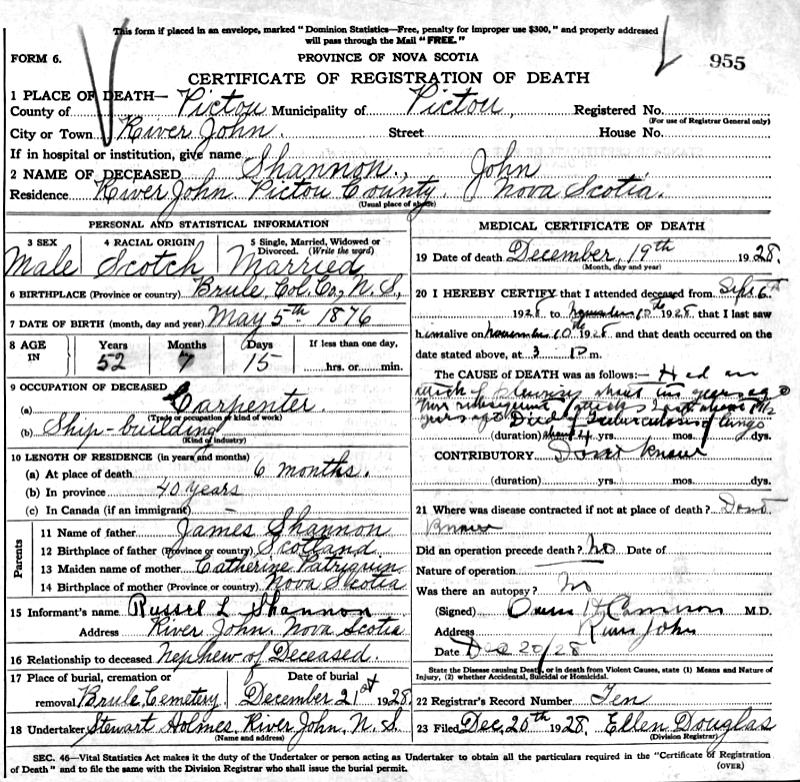 This form if placed in an envelope, marked "Dominion Statistics—Free, penalty for improper use $300," and properly addressed
will pass through the Mail "FREE."
955
FORM 6.
PROVINCE OF NOVA SCOTIA
CERTIFICATE OF REGISTRATION OF DEATH
1 PLACE OF DEATH—
County of Pictou Municipality of Pictou, Registered No.
(For use of Registrar General only)
City or Town River John. Street House No.
If in hospital or institution, give name
2 NAME OF DECEASED Shannon, John
Residence River John Pictou County Nova Scotia.
(Usual place of abode)
PERSONAL AND STATISTICAL INFORMATION
3 SEX 4 RACIAL ORIGIN 5 Single, Married, Widowed or Divorced. (Write the word)
Male Scotch Married
6 BIRTHPLACE (Province or country) Brule, Col. Co., N.S.,
7 DATE OF BIRTH (month, day and year) May 5th 1876
8 AGE IN Years Months Days If less than one day,
52 7 15 hrs. or min.
9 OCCUPATION OF DECEASED
(a) Carpenter.
(Trade or occupation or kind of work)
(b) Ship-building
(Kind of industry)
10 LENGTH OF RESIDENCE (in years and months)
(a) At place of death 6 months.
(b) In province 40 years
(c) In Canada (if an immigrant) –
Parents
11 Name of father James Shannon
12 Birthplace of father (Province or country) Scotland.
13 Maiden name of mother Catherine Patriquin
14 Birthplace of mother (Province or country) Nova Scotia
15 Informant's name Russel L Shannon
Address River John. Nova Scotia
16 Relationship to deceased Nephew of Deceased.
17 Place of burial, cremation or removal Brule Cemetery. Date of burial December 21st 1928.
18 Undertaker Stewart Holmes River John, N.S.
(Name and address)
MEDICAL CERTIFICATE OF DEATH
19 Date of death December, 19th 1928.
(Month, day and year)
20 I HEREBY CERTIFY that I attended deceased from Sept 6th
1928 to November 10th 1928 that I last saw
him alive on November 10th 1928 and that death occurred on the
date stated above, at 3 P m.
The CAUSE of DEATH was as follows:— Had an
attack of Pleurisy about ten years ago
years ago Died of Tuberculosis of lungs
(duration) yrs. mos. dys.
CONTRIBUTORY Dont know
(duration) yrs. mos. dys.
21 Where was disease contracted if not at place of death? Dont
Know
Did an operation precede death? No Date of
Nature of operation
Was there an autopsy? No
(Signed) Cameron M.D.
Address River John
Date Dec 20/28
State the Disease causing Death, or in death from Violent Causes, state (1) Means and Nature of
Injury, (2) whether Accidental, Suicidal or Homicidal.
22 Registrar's Record Number Ten
23 Filed Dec. 20th 1928. Ellen Douglas
(Division Registrar)
SEC. 46—Vital Statistics Act makes it the duty of the Undertaker or person acting as Undertaker to obtain all the particulars required in the "Certificate of Registration
of Death" and to file the same with the Division Registrar who shall issue the burial permit. (OVER)